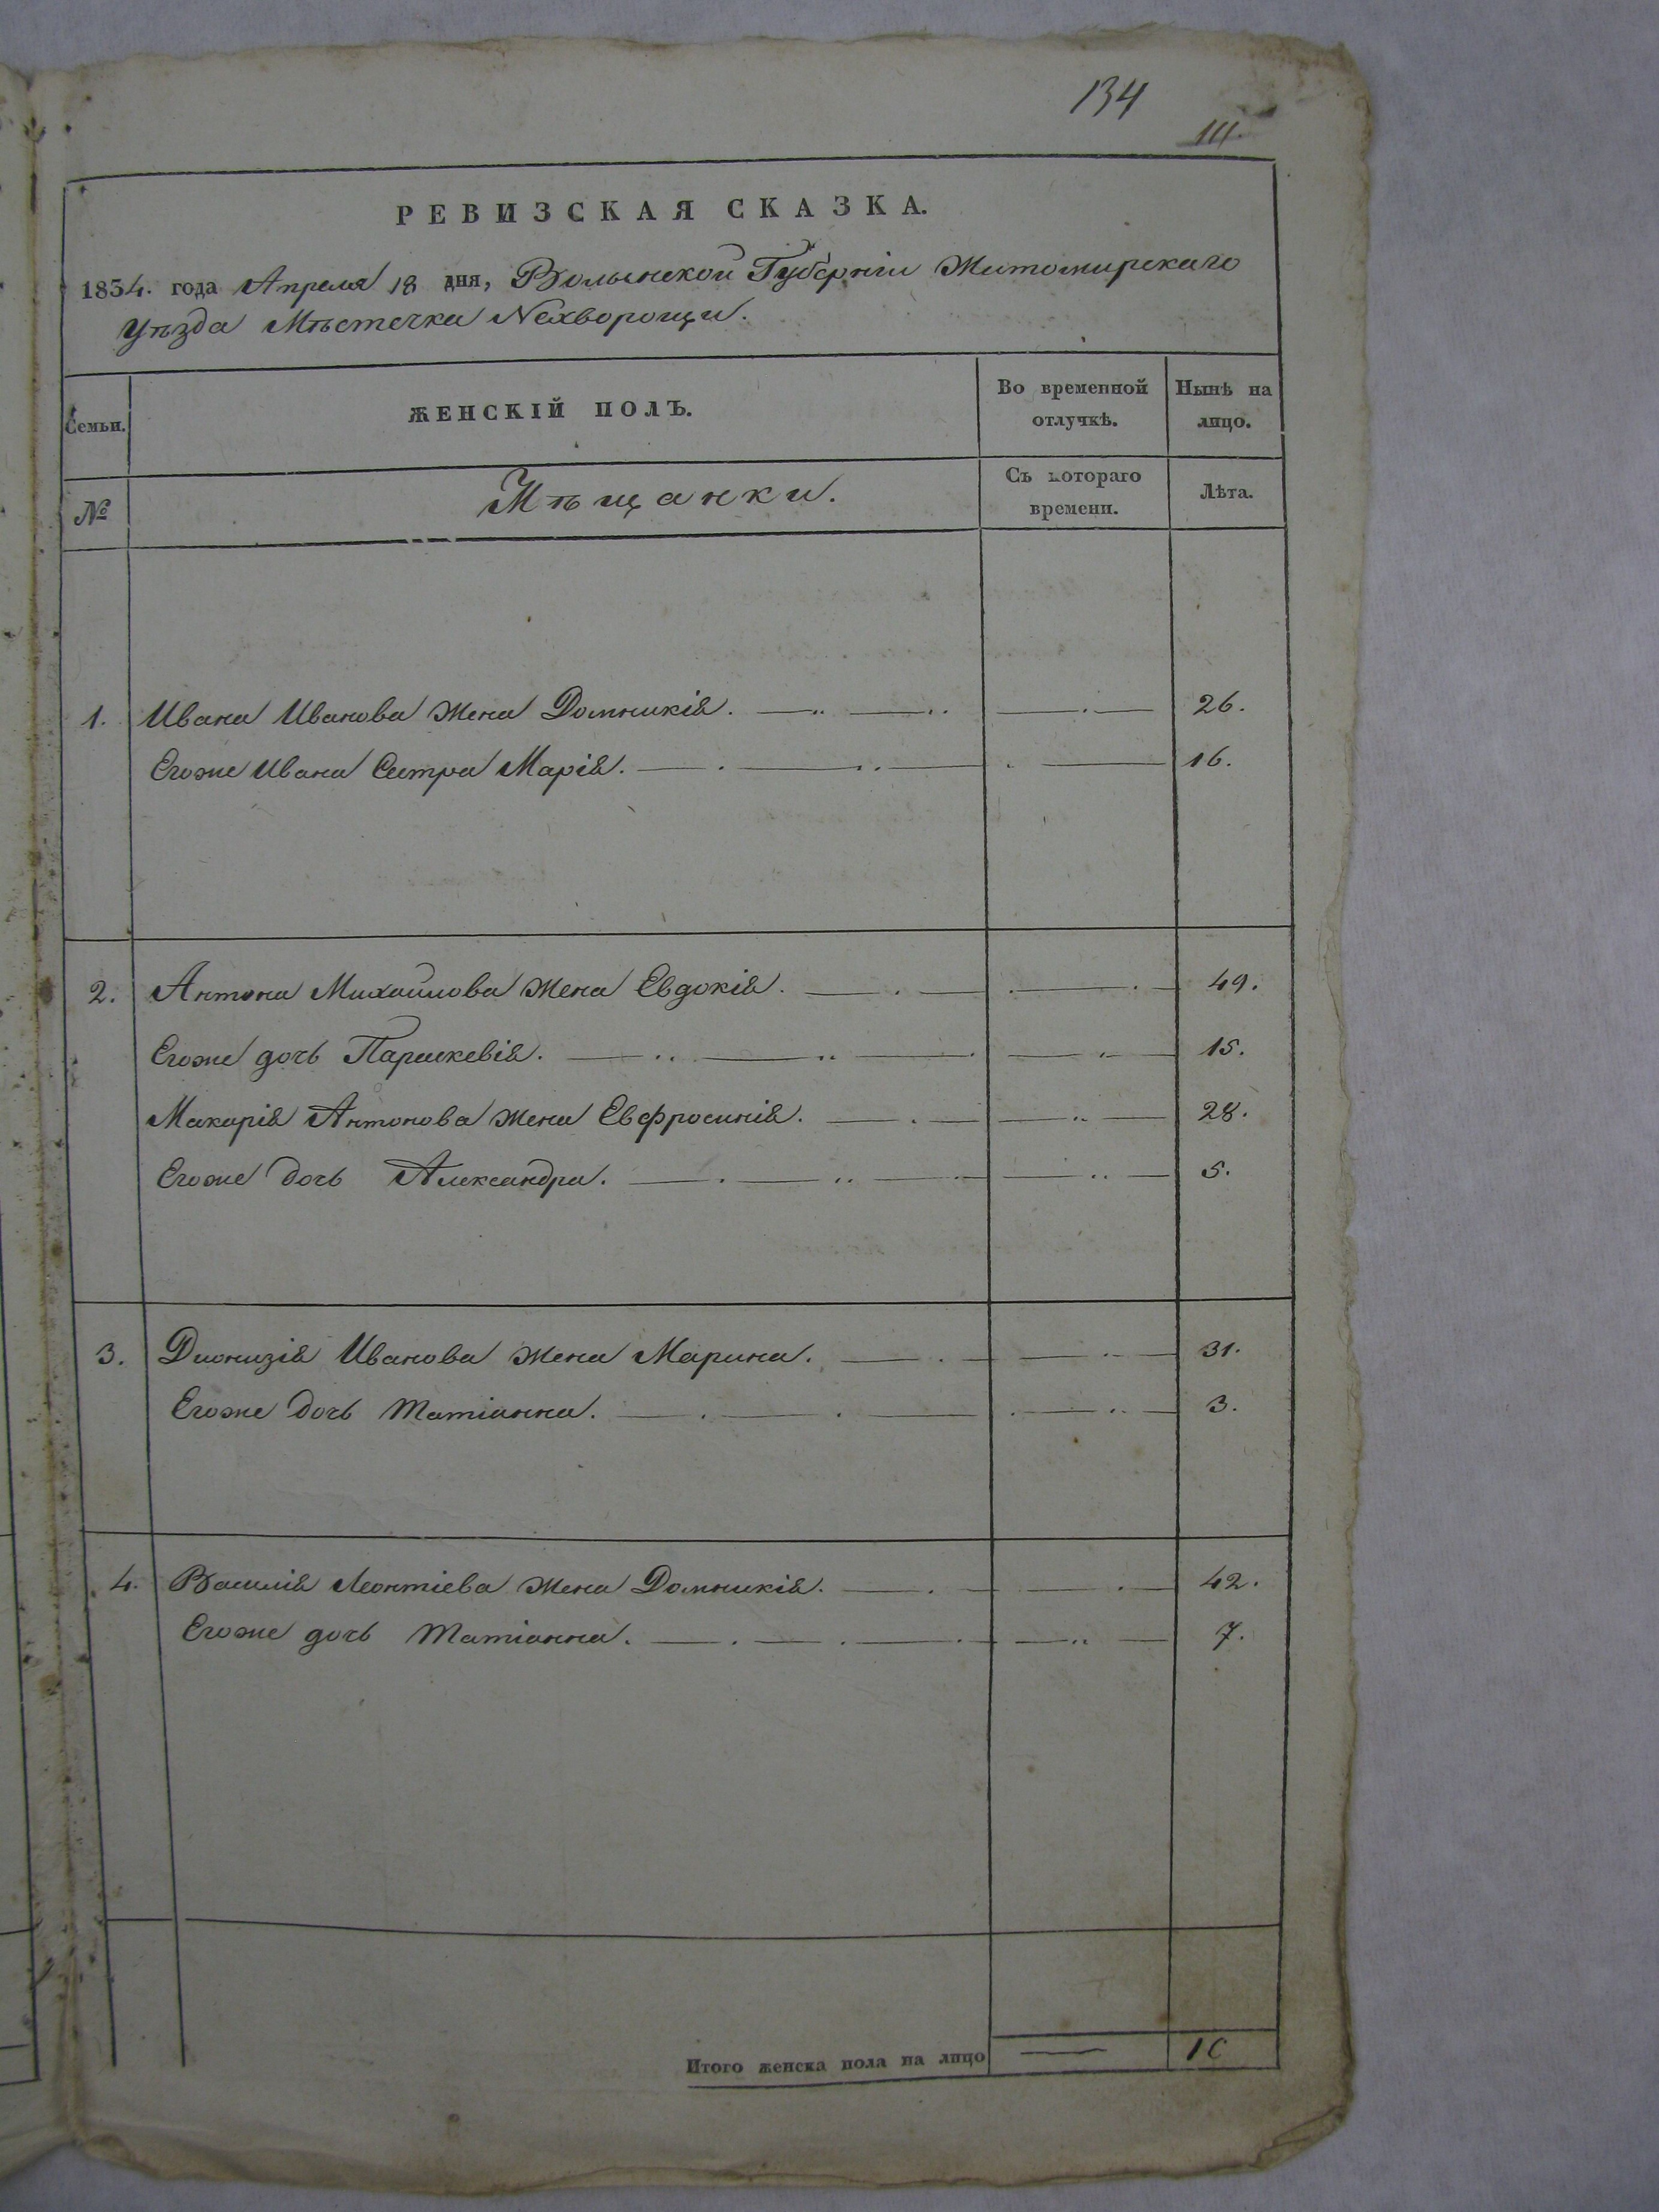 134
111.
РЕВИЗСКАЯ СКАЗКА.
1834. года Апреля 18 дня, Волынской Губерніи Житомирскаго
Уѣзда Мѣстечка Нехворощи.
Семьи.
ЖЕНСКІЙ ПОЛЪ.
Во временной отлучкѣ.
Нынѣ на лицо.
№
Мѣщанки.
Съ котораго времени.
Лѣта.
1. Ивана Иванова жена Домникія. 26.
Егоже Ивана Сестра Марія. 16.
2. Антона Михайлова жена Евдокія. 49.
Егоже дочь Параскевія. 15.
Макарія Антонова жена Евфросинія. 28.
Егоже дочь Александра. 5.
3. Дионизія Иванова жена Марина. 31.
Егоже дочь Татіанна. 3.
4. Василія Леонтіева жена Домникія. 42.
Егоже дочь Татіанна. 7.
Итого женска пола на лицо — 10